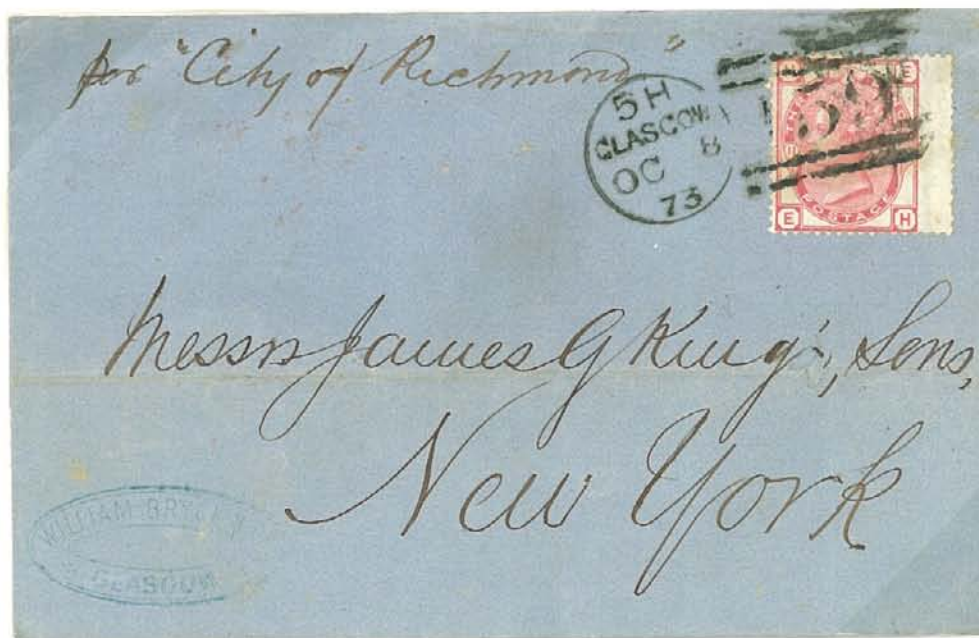 per "City of Richmond"
5H
GLASGOW
OC 8
73
159
H E
POSTAGE
E H
Messrs James G King's, Sons,
New York
WILLIAM
GLASGOW